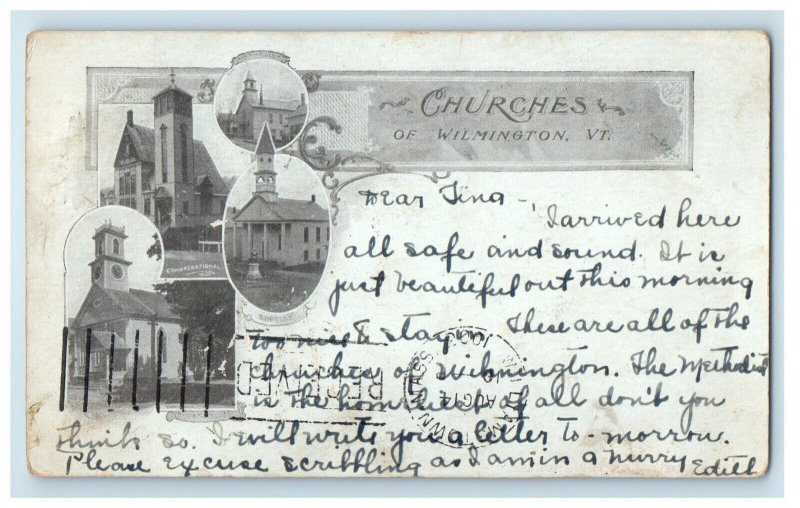 METHODIST
CHURCHES
OF WILMINGTON, VT.
CONGREGATIONAL
BAPTIST
Dear Tina -,
I arrived here
all safe and sound. It is
just beautiful out this morning
too nice to stay in. These are all of the
churches of Wilmington. The Methodist
is the homeliest of all don't you
think so. I will write you a letter to-morrow.
Please excuse scribbling as I am in a hurry Edith
RECEIVED
WILLIAMSTOWN MASS
AUG 14